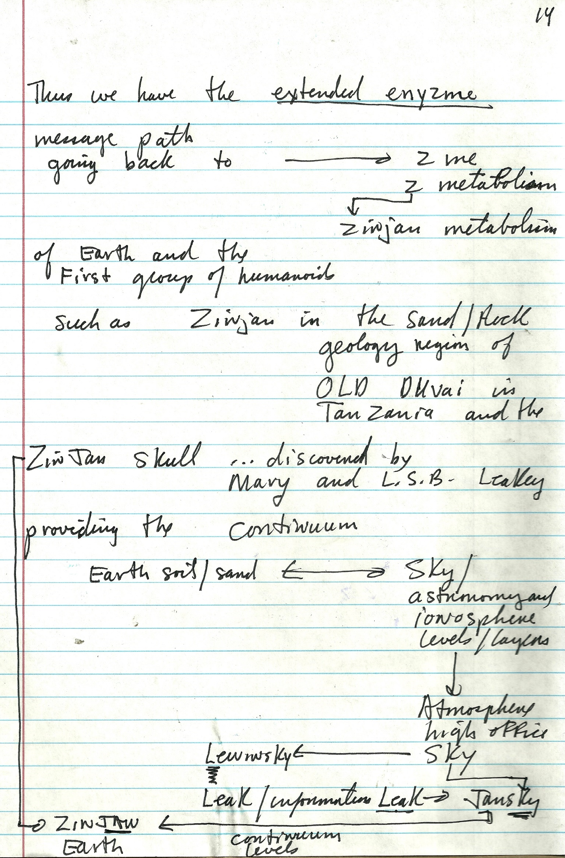 14
Thus we have the extended enyzme
message path
going back to → z me
z metabolism
Zinjan metabolism
of Earth and the
First group of humanoids
such as Zinjan in the sand/Rock
geology region of
OLD DUvai in
TanZania and the
ZinJan skull ... discovered by
Mary and L.S.B. Leakey
providing the continuum
Earth soil/sand ↔ Sky/
astronomy and
ionosphere
levels/layers
Atmosphere
high office
Lewinsky ← Sky
Leak/information Leak → Jansky
→ ZINJAN ←
Earth
continuum
levels